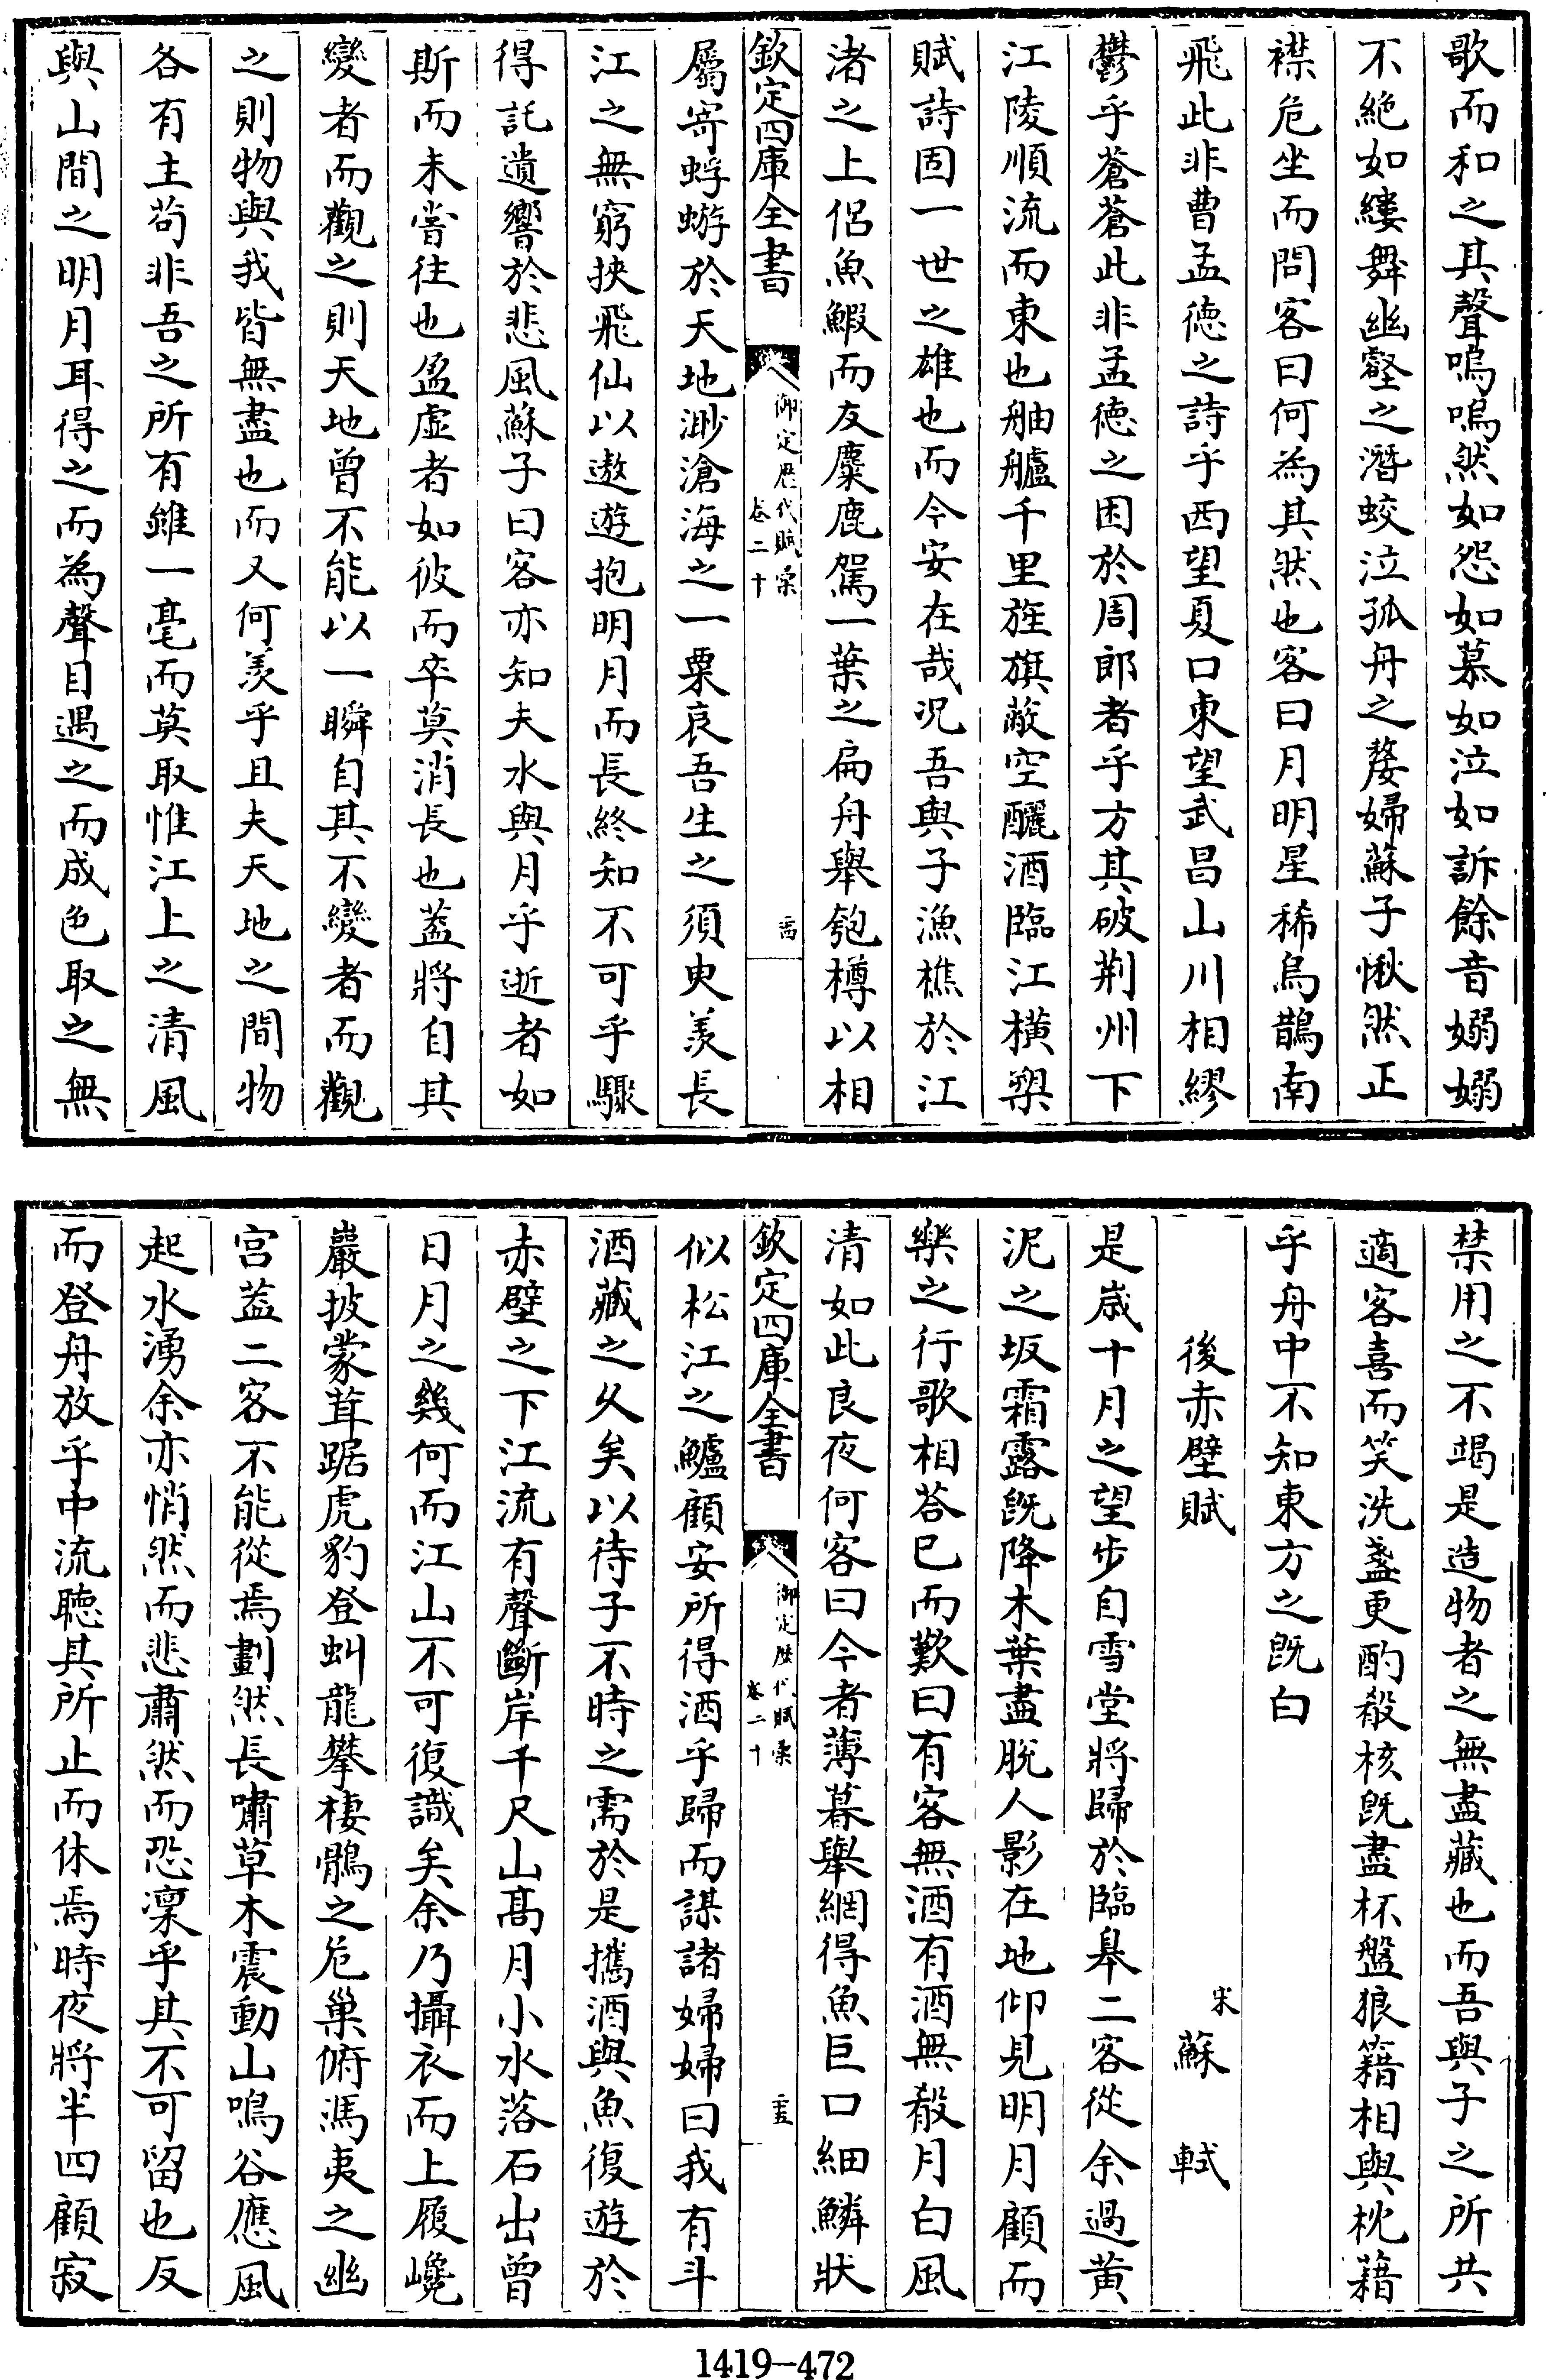 歌而和之其聲嗚嗚然如怨如慕如泣如訴餘音嫋嫋
不絶如縷舞幽壑之潛蛟泣孤舟之嫠婦蘇子愀然正
襟危坐而問客曰何為其然也客曰月明星稀烏鵲南
飛此非曹孟德之詩乎西望夏口東望武昌山川相繆
鬱乎蒼蒼此非孟德之困於周郎者乎方其破荆州下
江陵順流而東也舳艫千里旌旗蔽空釃酒臨江横槊
賦詩固一世之雄也而今安在哉况吾與子漁樵於江
渚之上侣魚鰕而友麋鹿駕一葉之扁舟舉匏樽以相
欽定四庫全書
御定歴代賦彚
卷二十
屬寄蜉蝣於天地渺滄海之一粟哀吾生之須臾羡長
江之無窮挾飛仙以遨遊抱明月而長終知不可乎驟
得託遺響於悲風蘇子曰客亦知夫水與月乎逝者如
斯而未嘗往也盈虚者如彼而卒莫消長也葢將自其
變者而觀之則天地曾不能以一瞬自其不變者而觀
之則物與我皆無盡也而又何羡乎且夫天地之間物
各有主苟非吾之所有雖一毫而莫取惟江上之清風
與山間之明月耳得之而為聲目遇之而成色取之無
禁用之不竭是造物者之無盡藏也而吾與子之所共
適客喜而笑洗盞更酌殽核既盡杯盤狼籍相與枕藉
乎舟中不知東方之既白
後赤壁賦
宋蘇軾
是嵗十月之望步自雪堂將歸於臨臯二客從余過黄
泥之坂霜露既降木葉盡脱人影在地仰見明月顧而
樂之行歌相荅已而歎曰有客無酒有酒無殽月白風
清如此良夜何客曰今者薄暮舉網得魚巨口細鱗狀
欽定四庫全書
御定歴代賦彚
卷二十
似松江之鱸顧安所得酒乎歸而謀諸婦婦曰我有斗
酒藏之久矣以待子不時之需於是攜酒與魚復遊於
赤壁之下江流有聲斷岸千尺山髙月小水落石出曾
日月之幾何而江山不可復識矣余乃攝衣而上履巉
巖披蒙茸踞虎豹登虯龍攀棲鶻之危巢俯馮夷之幽
宫葢二客不能從焉劃然長嘯草木震動山鳴谷應風
起水湧余亦悄然而悲肅然而恐凜乎其不可留也反
而登舟放乎中流聽其所止而休焉時夜將半四顧寂
1419-472